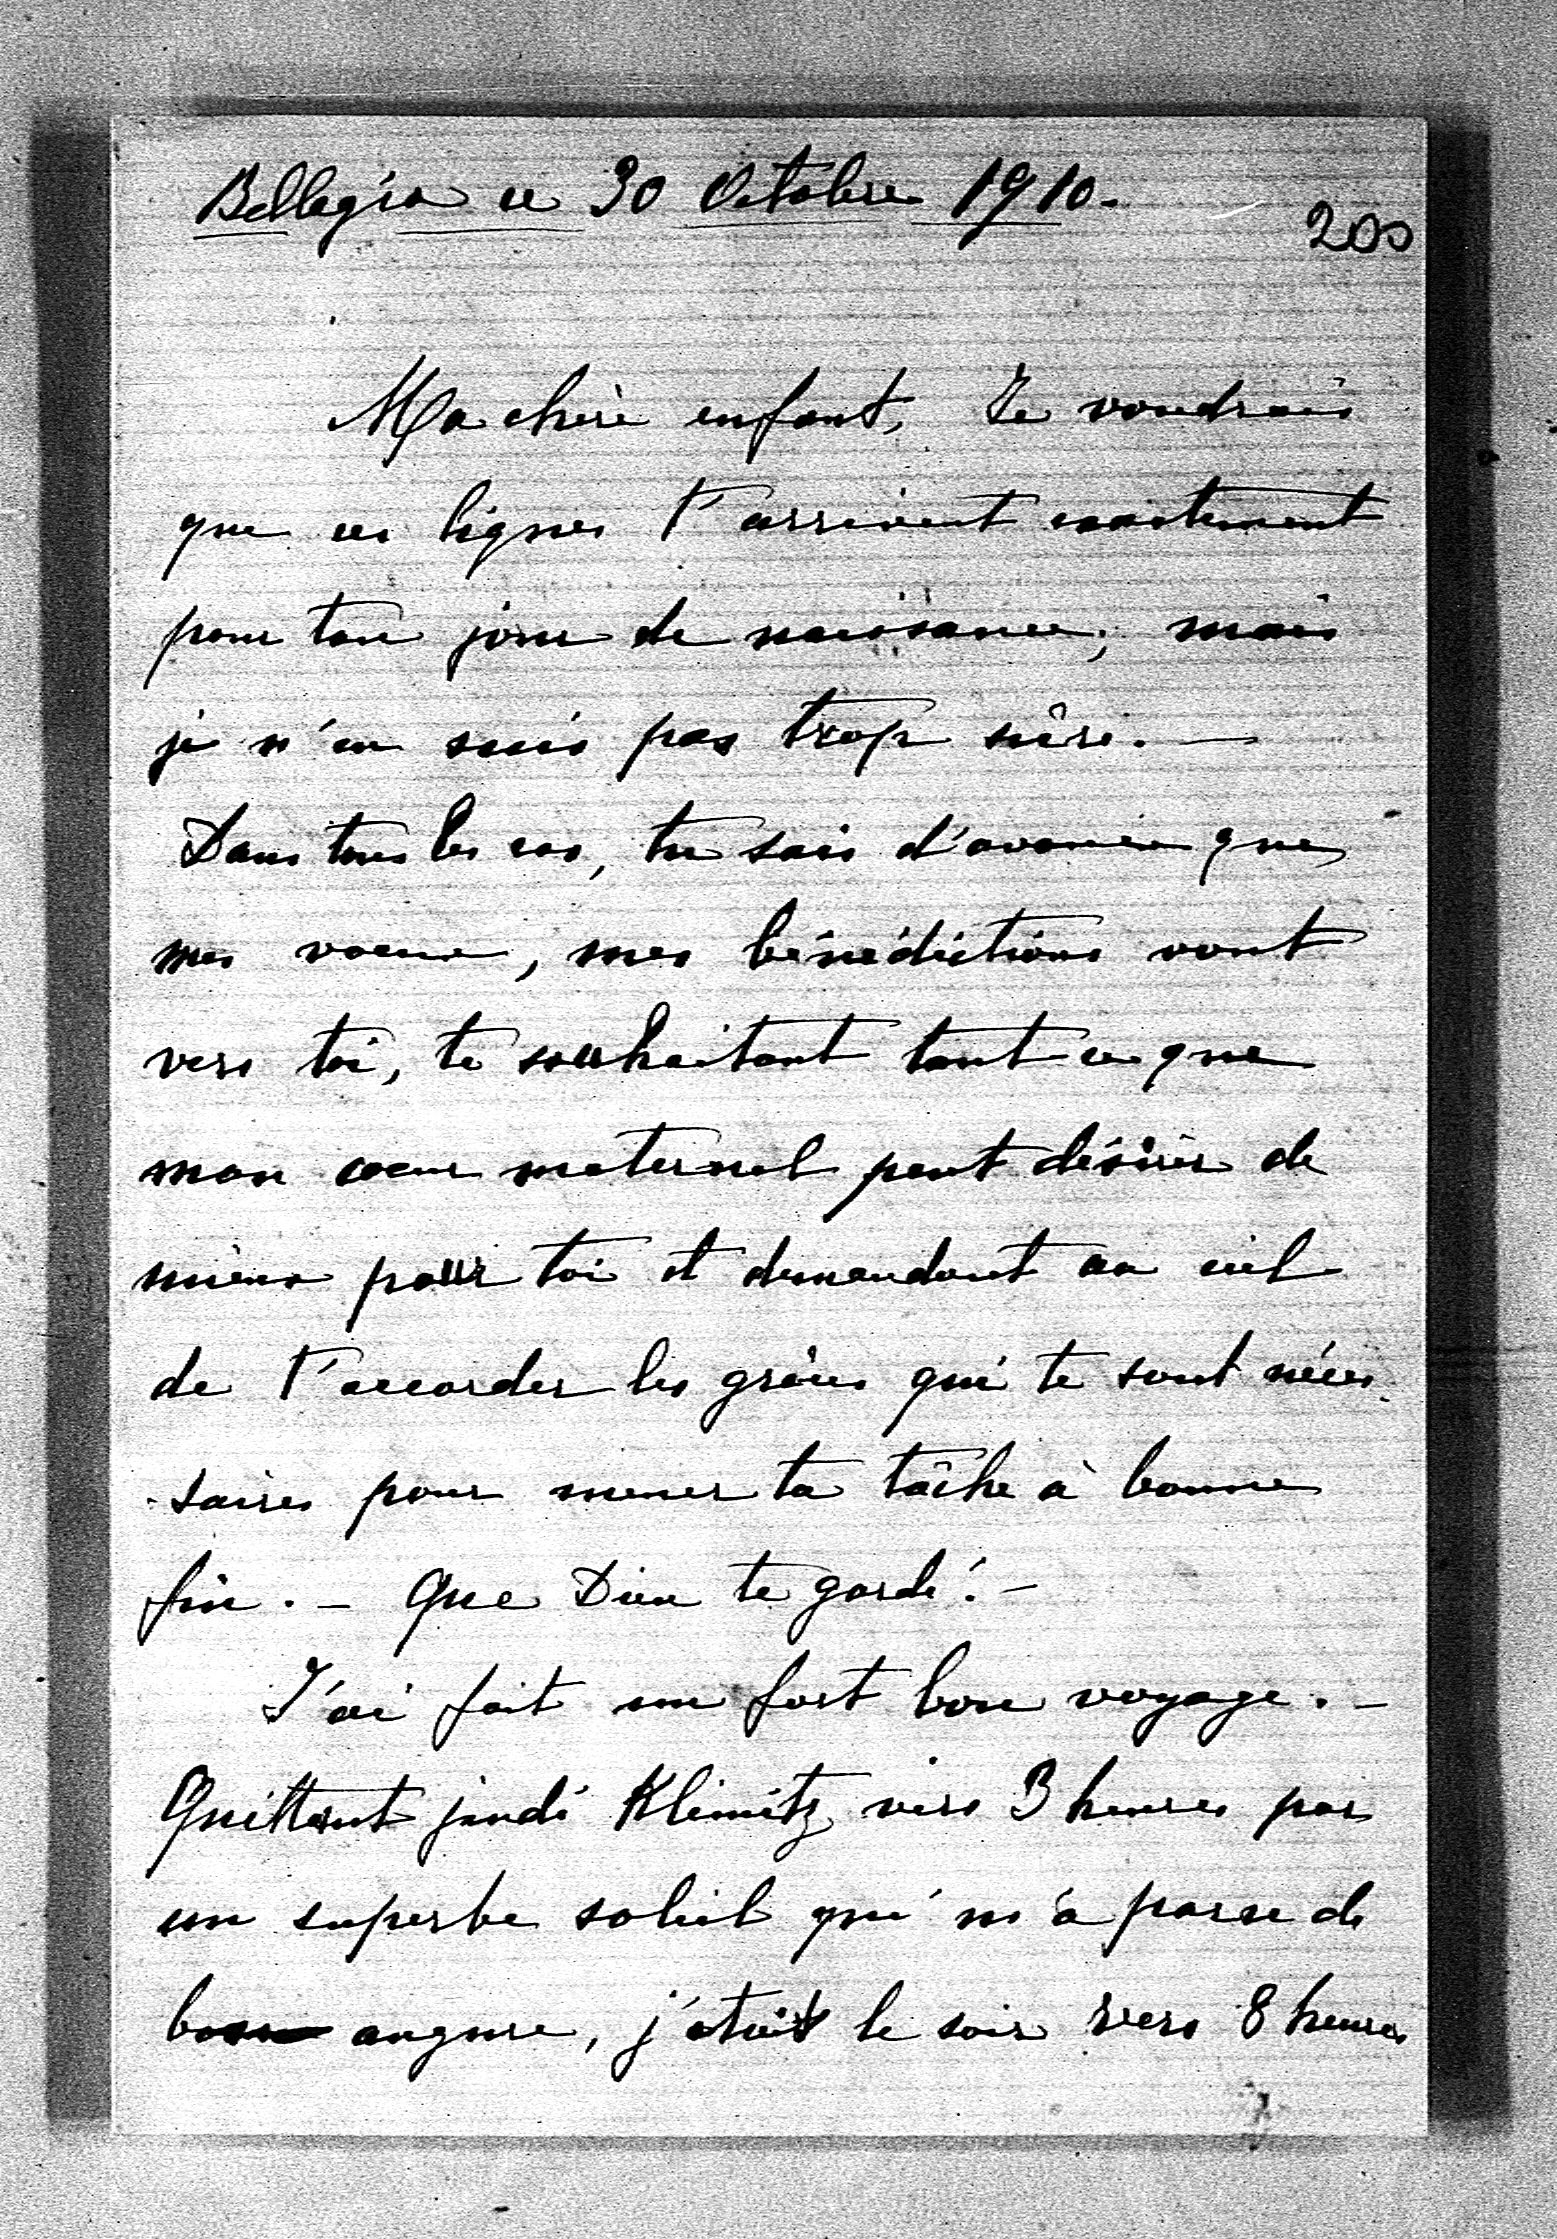 Bellegra ce 30 Octobre 1910.
200
Ma chère enfant, Je voudrais
que ces lignes t'arrivent exactement
pour ton jour de naissance; mais
je n'en suis pas trop sûre. —
Dans tous les cas, tu sais d'avance que
mes voeux, mes bénédictions vont
vers toi, te souhaitant tout ce que
mon coeur maternel peut désirer de
mieux pour toi et demandant au ciel
de t'accorder les grâces qui te sont néces-
-saires pour mener ta tâche à bonne
fin. — Que Dieu te garde! —
J'ai fait un fort bon voyage. —
Quittant jeudi Klemitz vers 3 heures par
un superbe soleil qui m'a paru de
bon augure, j'étais le soir vers 8 heures